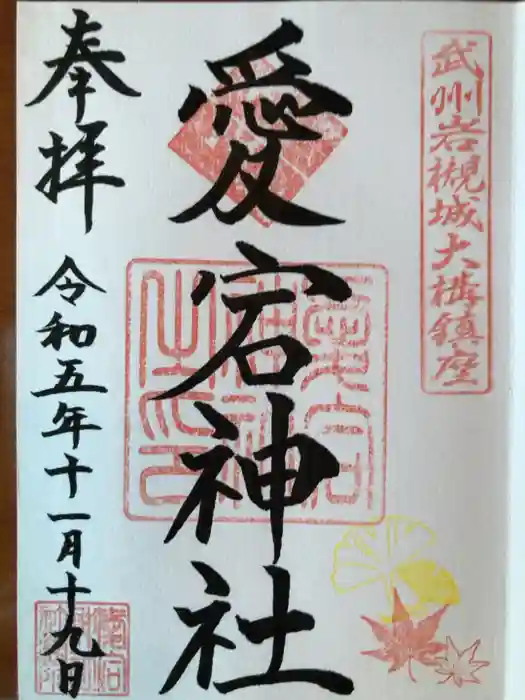 武州岩槻城大構鎮座
愛宕神社
奉拝
令和五年十一月十九日